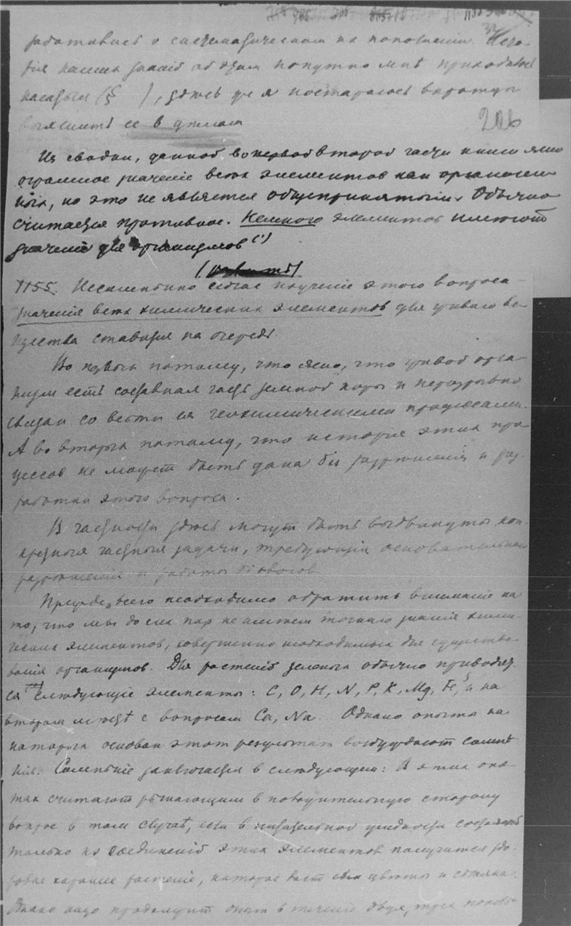 206
выяснить ее в
Из сводки, данной во первой второй части книги ясно
огромное значение всех элементов как организмен
ных, но это не является общепринятым. Обычно
считается противное. Немного элементов имеют
значение для организмов (1)
1155. Несомненно сейчас изучение этого вопроса
значения всех химических элементов для живого ве
щества ставится на очередь.
Во первых потому, что ясно, что живой орга
низм есть составная часть земной коры и неразрывно
связан со всеми ея геохимическими процессами.
А во вторых потому, что история этих про
цессов не может быть дана без разрешения и раз
работки этого вопроса.
В частности здесь могут быть выдвинуты кон
кретныя частныя задачи, требующия основательнаго
разрешения и работы
Прежде всего необходимо обратить внимание на
то, что мы до сих пор не имеем точнаго знания хими
ческих элементов, совершенно необходимых для существо
вания организмов. Для растений зеленых обычно приводят
ся следующие элементы: C, O, H, N, P, K, Mg, Fe, S и на
втором месте с вопросом Ca, Na. Однако опыты на
которых основан этот результат возбуждают сомне
ние. Сомнение заключается в следующем: В этих опы
тах считают решающим в положительную сторону
вопрос в том случае, если в питательной жидкости
только из соединений этих элементов получится здо
ровое хорошее растение, которое даст свои цветы и семена.
Однако надо продолжить опыт в течение двух, трех